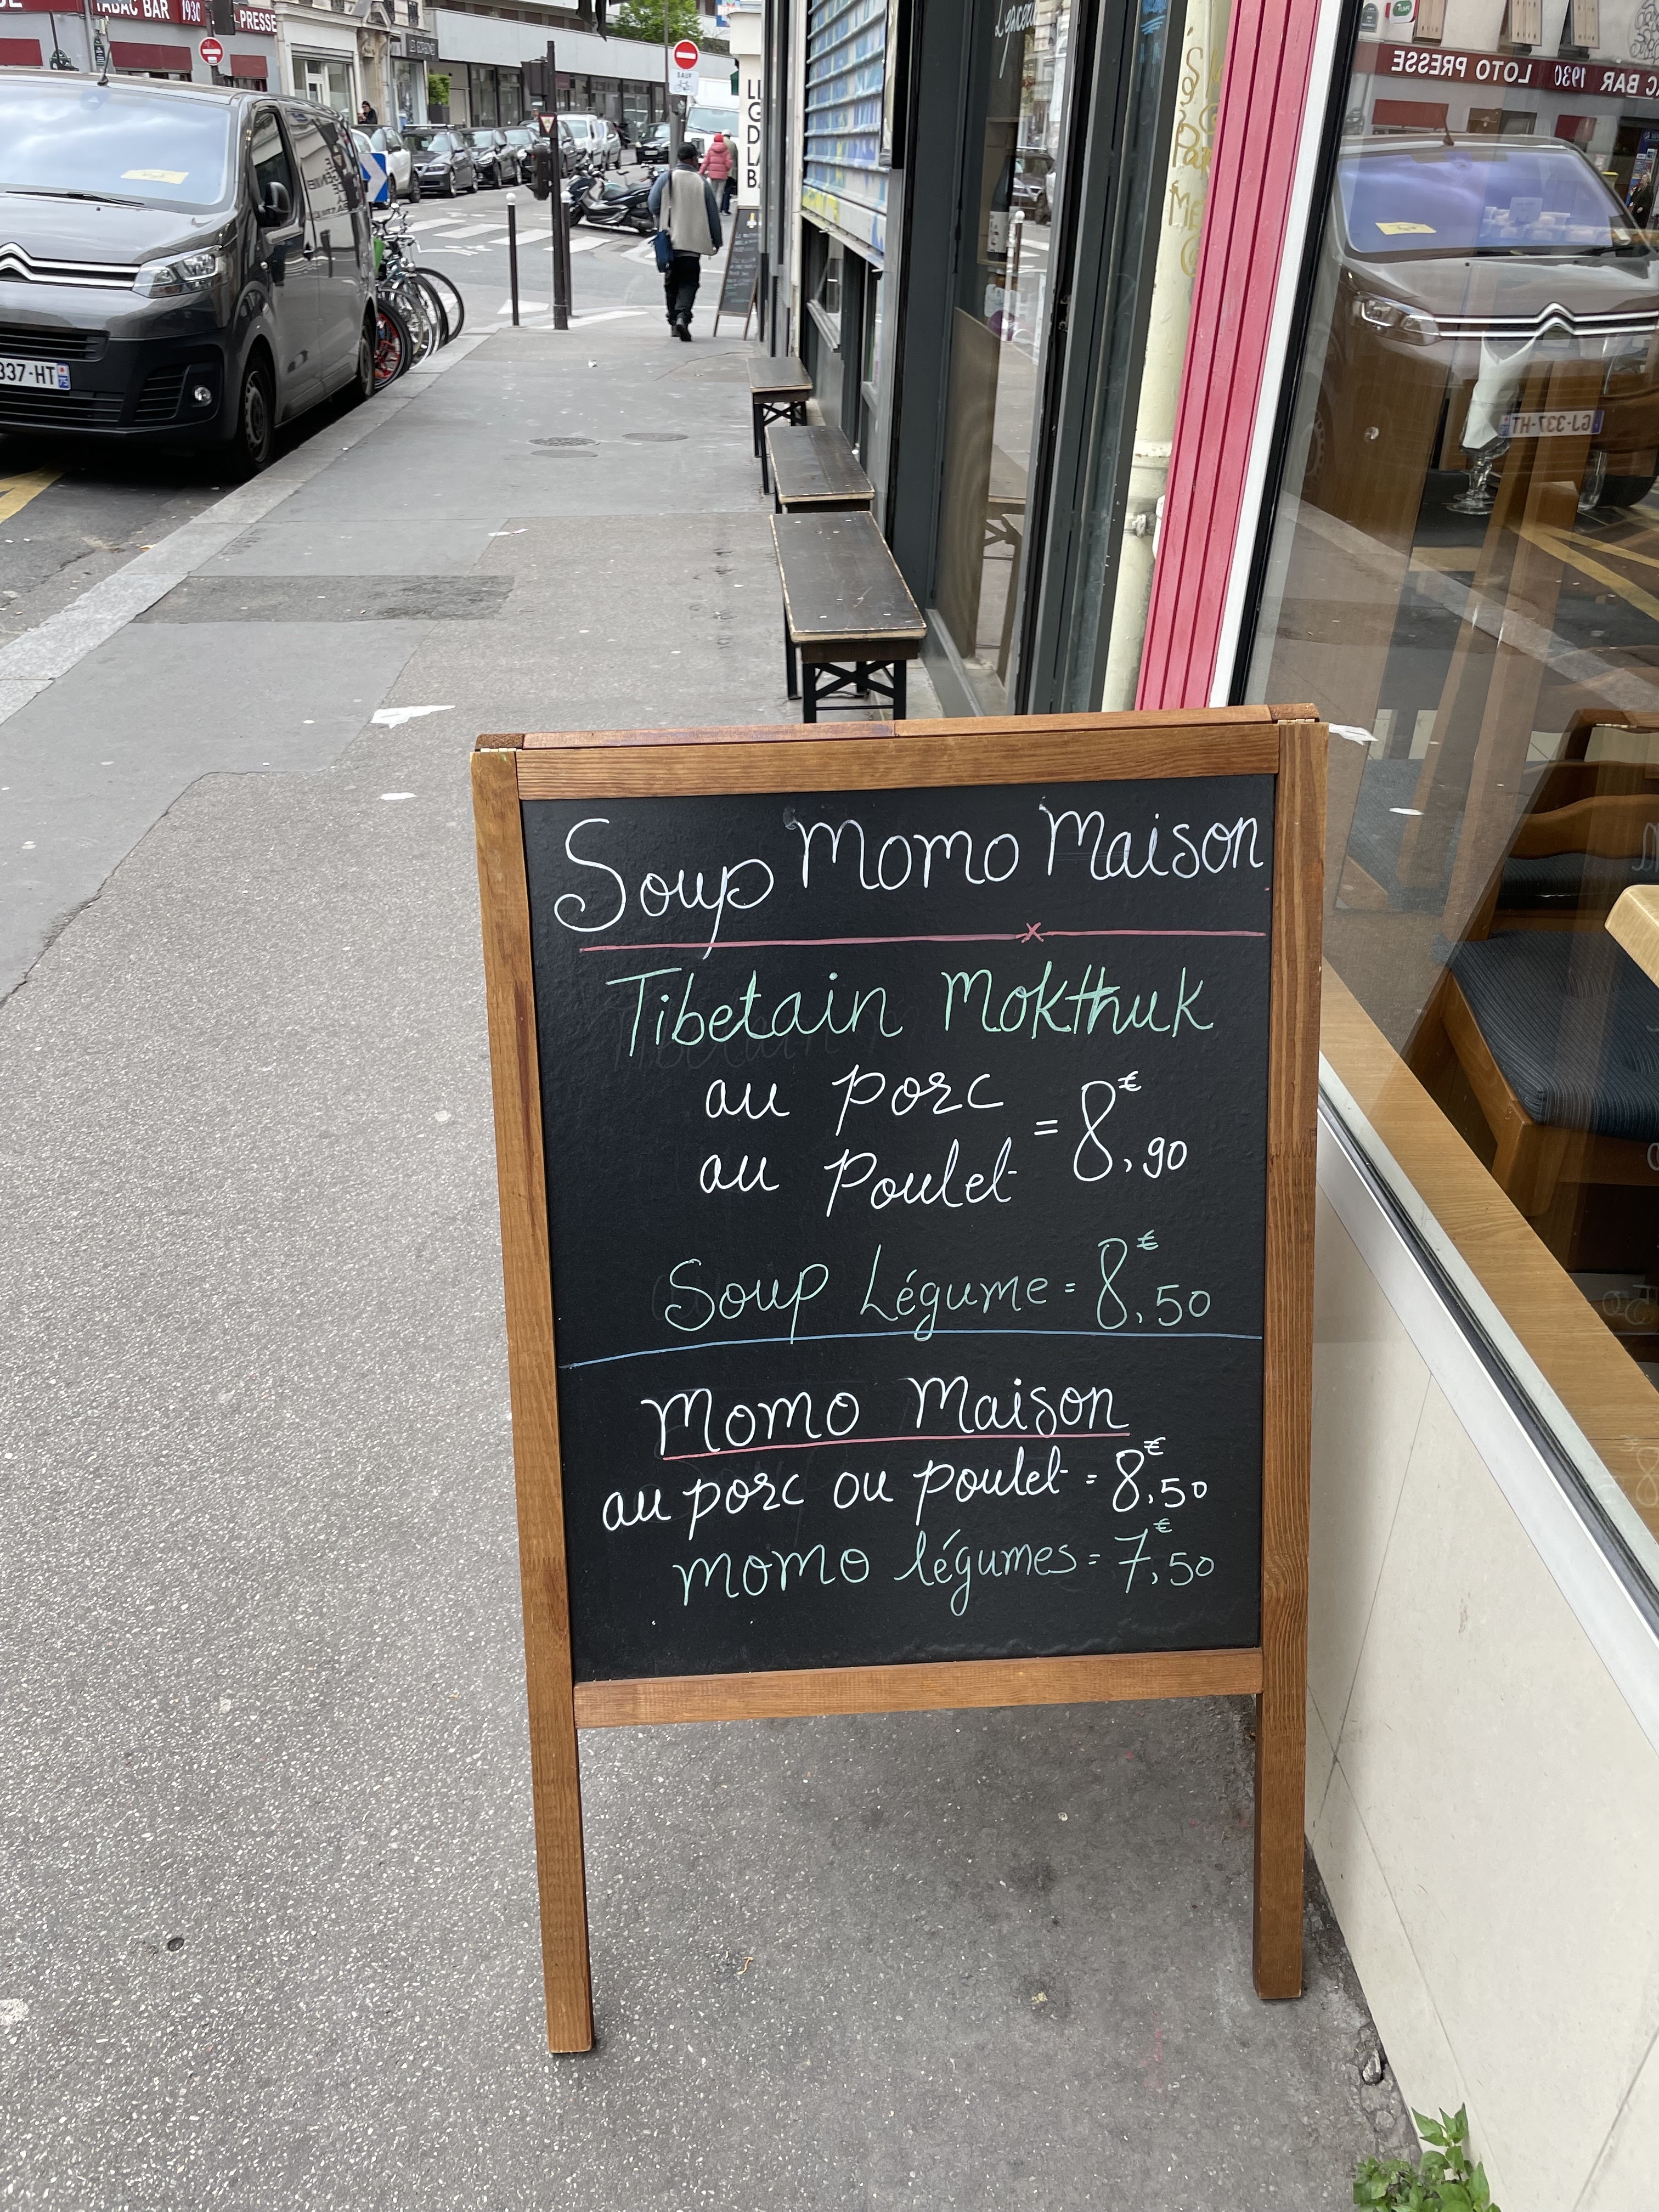 TABAC BAR 1930
PRESSE
SAUF
337-HT
75
LOTO PRESSE
BAR 1930
GJ-337-HT
Soup Momo Maison
Tibetain Mokthuk
au porc
au Poulet = 8€,90
Soup Légume = 8€,50
Momo Maison
au porc ou poulet = 8€,50
momo légumes = 7€,50